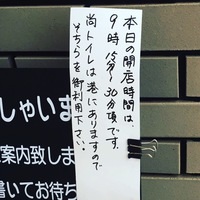 本日の開店時間は、
9時15分〜30分頃です。
尚トイレは港にありますので
そちらを御利用下さい。
しゃいま
案内致しま
書いてお待ち